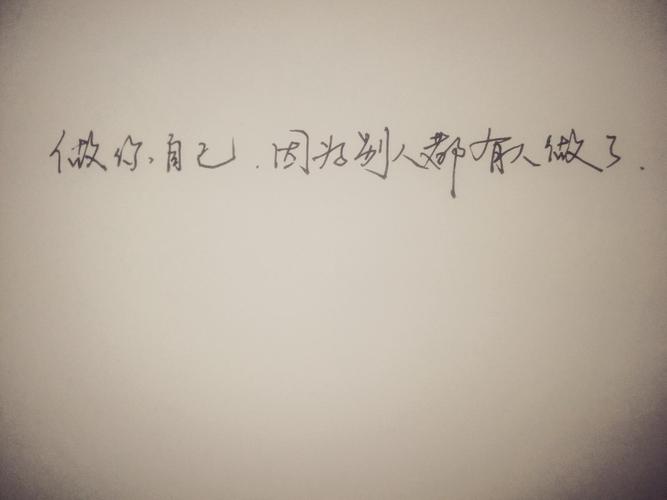 做你自己.因为别人都有人做了.